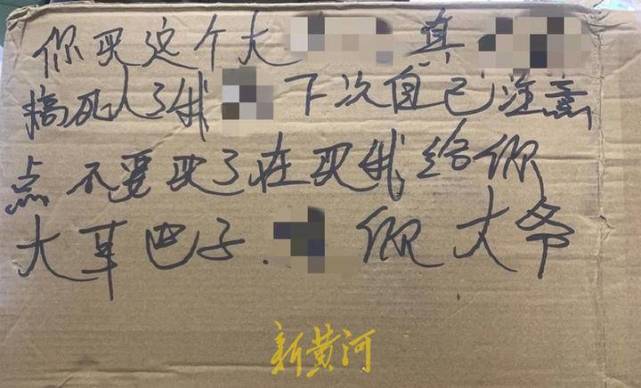 你买这个大 真
搞死人了我 下次自己注意
点不要买了在买我给你
大草巴子. 你大爷
新黄河